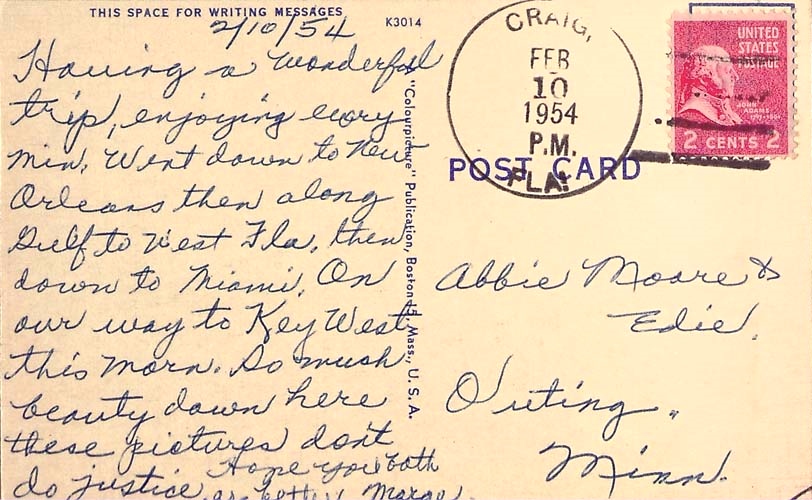 THIS SPACE FOR WRITING MESSAGES
2/10/54
K3014
Having a wonderful
trip, enjoying every
min. Went down to New
Orleans then along
Gulf to West Fla, then
down to Miami. On
our way to Key West
this morn. So much
beauty down here
these pictures don't
do justice. Hope you both
are better. Marge
"Colourpicture" Publication, Boston 15, Mass., U. S. A.
CRAIG,
FEB
10
1954
P.M.
FLA.
UNITED
STATES
POSTAGE
JOHN
ADAMS
2 CENTS 2
POST CARD
Abbie Moore &
Edie.
Outing,
Minn.